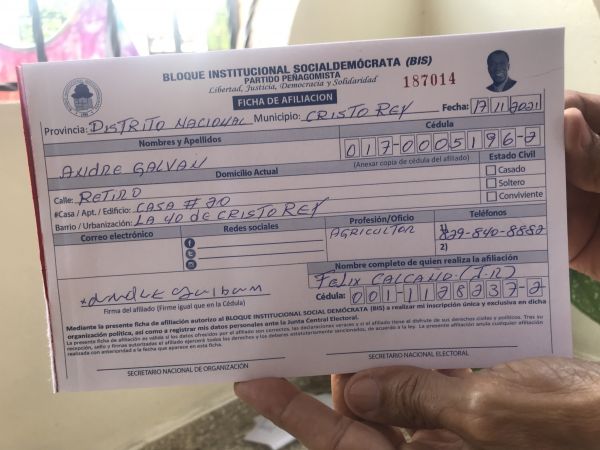 BLOQUE INSTITUCIONAL SOCIALDEMÓCRATA (BIS)
PARTIDO PEÑAGOMISTA
Libertad, Justicia, Democracia y Solidaridad
187014
FICHA DE AFILIACION
Provincia: DISTRITO NACIONAL Municipio: CRISTO REY Fecha: 17/11/2021
Nombres y Apellidos Cédula
ANDRE GALVAN 017-0005196-2
Domicilio Actual (Anexar copia de cédula del afiliado) Estado Civil
Calle: RETIRO Casado
#Casa / Apt. / Edificio: CASA # 20 Soltero
Barrio / Urbanización: LA 40 DE CRISTO REY Conviviente
Correo electrónico Redes sociales Profesión/Oficio Teléfonos
AGRICULTOR 1) 829-840-8882
2)
Nombre completo de quien realiza la afiliación
FELIX CALCAÑO (J.R)
Firma del afiliado (Firme igual que en la Cédula) Cédula: 001-1128237-2
Mediante la presente ficha de afiliación autorizo al BLOQUE INSTITUCIONAL SOCIAL DEMÓCRATA (BIS) a realizar mi inscripción única y exclusiva en dicha
organización política, así como a registrar mi datos personales ante la Junta Central Electoral.
La presente ficha de afiliación es válida si los datos ofrecidos por el afiliado son correctos, las declaraciones veraces y si el afiliado tiene el disfrute de sus derechos civiles y políticos. Tres su
recepción, sello y firmas autorizadas el afiliado ejercerá todos los derechos y los deberes estatutariamente señalados, de acuerdo a la ley. La presente afiliación anula cualquier afiliación
realizada con anterioridad a la fecha que aparece en esta ficha.
SECRETARIO NACIONAL DE ORGANIZACIÓN SECRETARIO NACIONAL ELECTORAL